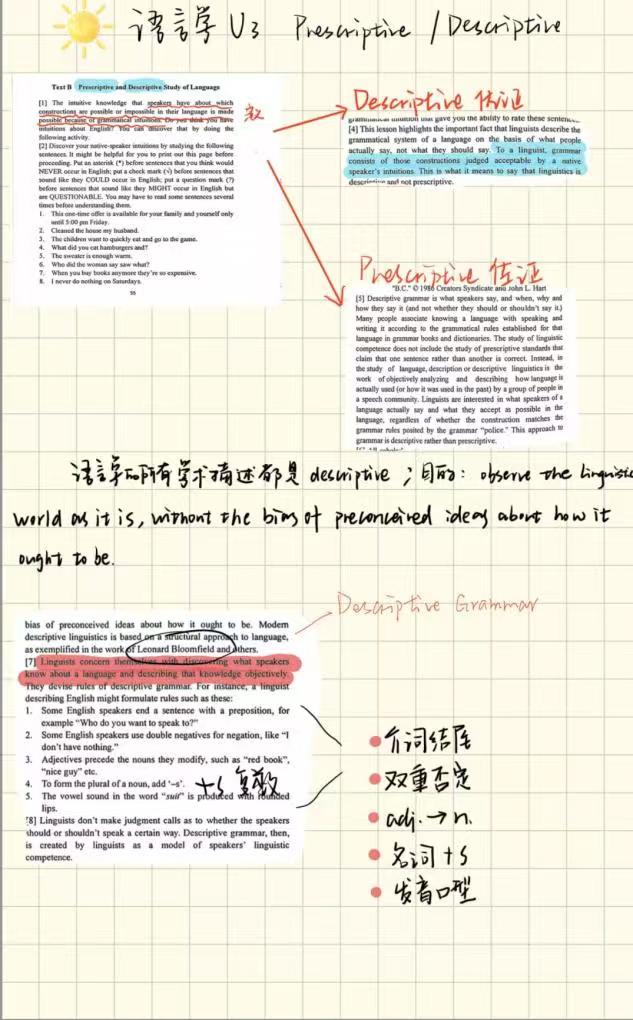 语言学 U3 Prescriptive / Descriptive
Text B Prescriptive and Descriptive Study of Language
[1] The intuitive knowledge that speakers have about which
constructions are possible or impossible in their language is made
possible because of grammatical intuitions. Do you think you have
intuitions about English? You can discover that by doing the
following activity.
[2] Discover your native-speaker intuitions by studying the following
sentences. It might be helpful for you to print out this page before
proceeding. Put an asterisk (*) before sentences that you think would
NEVER occur in English; put a check mark (√) before sentences that
sound like they COULD occur in English; put a question mark (?)
before sentences that sound like they MIGHT occur in English but
are QUESTIONABLE. You may have to read some sentences several
times before understanding them.
1. This one-time offer is available for your family and yourself only
until 5:00 pm Friday.
2. Cleaned the house my husband.
3. The children want to quickly eat and go to the game.
4. What did you eat hamburgers and?
5. The sweater is enough warm.
6. Who did the woman say saw what?
7. When you buy books anymore they're so expensive.
8. I never do nothing on Saturdays.
55
Descriptive 佐证
grammatical intuition that gave you the ability to rate these sentences.
[4] This lesson highlights the important fact that linguists describe the
grammatical system of a language on the basis of what people
actually say, not what they should say. To a linguist, grammar
consists of those constructions judged acceptable by a native
speaker's intuitions. This is what it means to say that linguistics is
descriptive and not prescriptive.
Prescriptive 佐证
"B.C." © 1986 Creators Syndicate and John L. Hart
[5] Descriptive grammar is what speakers say, and when, why and
how they say it (and not whether they should or shouldn't say it.)
Many people associate knowing a language with speaking and
writing it according to the grammatical rules established for that
language in grammar books and dictionaries. The study of linguistic
competence does not include the study of prescriptive standards that
claim that one sentence rather than another is correct. Instead, in
the study of language, description or descriptive linguistics is the
work of objectively analyzing and describing how language is
actually used (or how it was used in the past) by a group of people in
a speech community. Linguists are interested in what speakers of a
language actually say and what they accept as possible in the
language, regardless of whether the construction matches the
grammar rules posited by the grammar "police." This approach to
grammar is descriptive rather than prescriptive.
语言学的所有学术描述都是 descriptive ; 目的: observe the linguistic
world as it is, without the bias of preconceived ideas about how it
ought to be.
Descriptive Grammar
bias of preconceived ideas about how it ought to be. Modern
descriptive linguistics is based on a structural approach to language,
as exemplified in the work of Leonard Bloomfield and others.
[7] Linguists concern themselves with discovering what speakers
know about a language and describing that knowledge objectively.
They devise rules of descriptive grammar. For instance, a linguist
describing English might formulate rules such as these:
1. Some English speakers end a sentence with a preposition, for
example "Who do you want to speak to?"
2. Some English speakers use double negatives for negation, like "I
don't have nothing."
3. Adjectives precede the nouns they modify, such as "red book",
"nice guy" etc.
4. To form the plural of a noun, add '–s'. +s 复数
5. The vowel sound in the word "suit" is produced with rounded
lips.
[8] Linguists don't make judgment calls as to whether the speakers
should or shouldn't speak a certain way. Descriptive grammar, then,
is created by linguists as a model of speakers' linguistic
competence.
介词结尾
双重否定
adj. → n.
名词 + s
发音口型